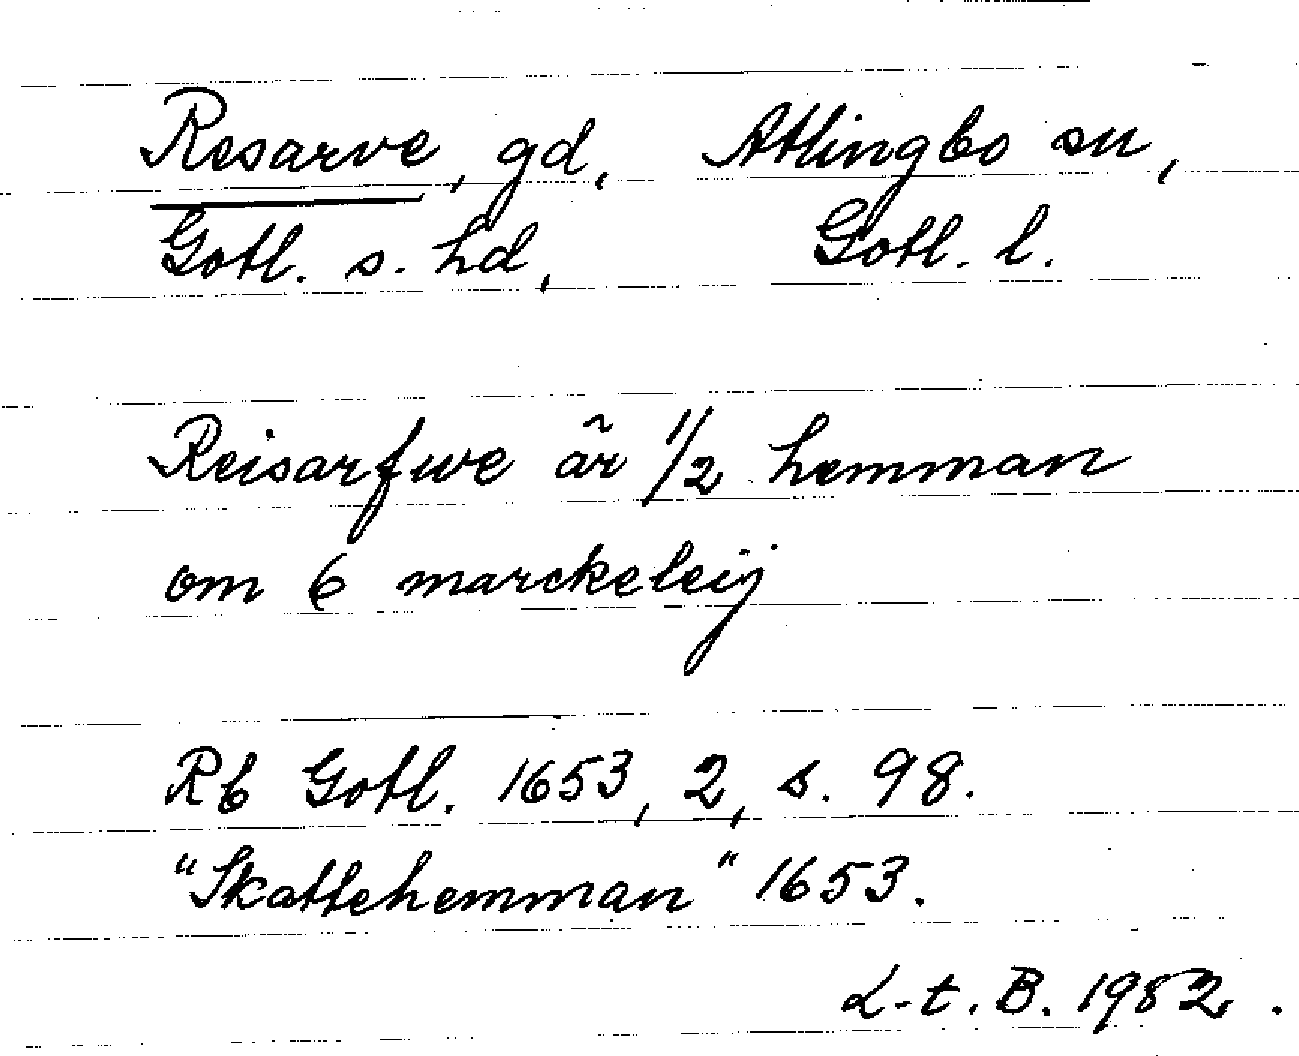 Resarve, gd, Atlingbo sn,
Gotl. s. hd, Gotl. l.
Reisarfwe är 1/2 hemman
om 6 marckeleij
Rb Gotl. 1653, 2, s. 98.
"Skattehemman" 1653.
L-t. B. 1982.